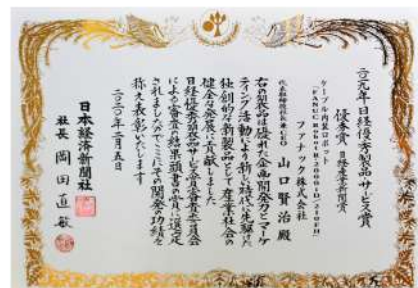 二〇一九年日経優秀製品・サービス賞
優秀賞 日経産業新聞賞
ケーブル内装ロボット
「FANUC Robot R-2000iD/210FH」
ファナック株式会社
代表取締役社長兼CEO 山口賢治 殿
右の製品は優れた企画開発力とマーケ
ティング活動により新しい時代に先駆けた
独創的な新製品として産業社会の
健全な発展に貢献しました
日経優秀製品サービス賞審査委員会
による審査の結果頭書の賞に選定
されましたのでここにその開発の功績を
称え表彰いたします
二〇二〇年二月五日
日本経済新聞社
社長 岡田直敏